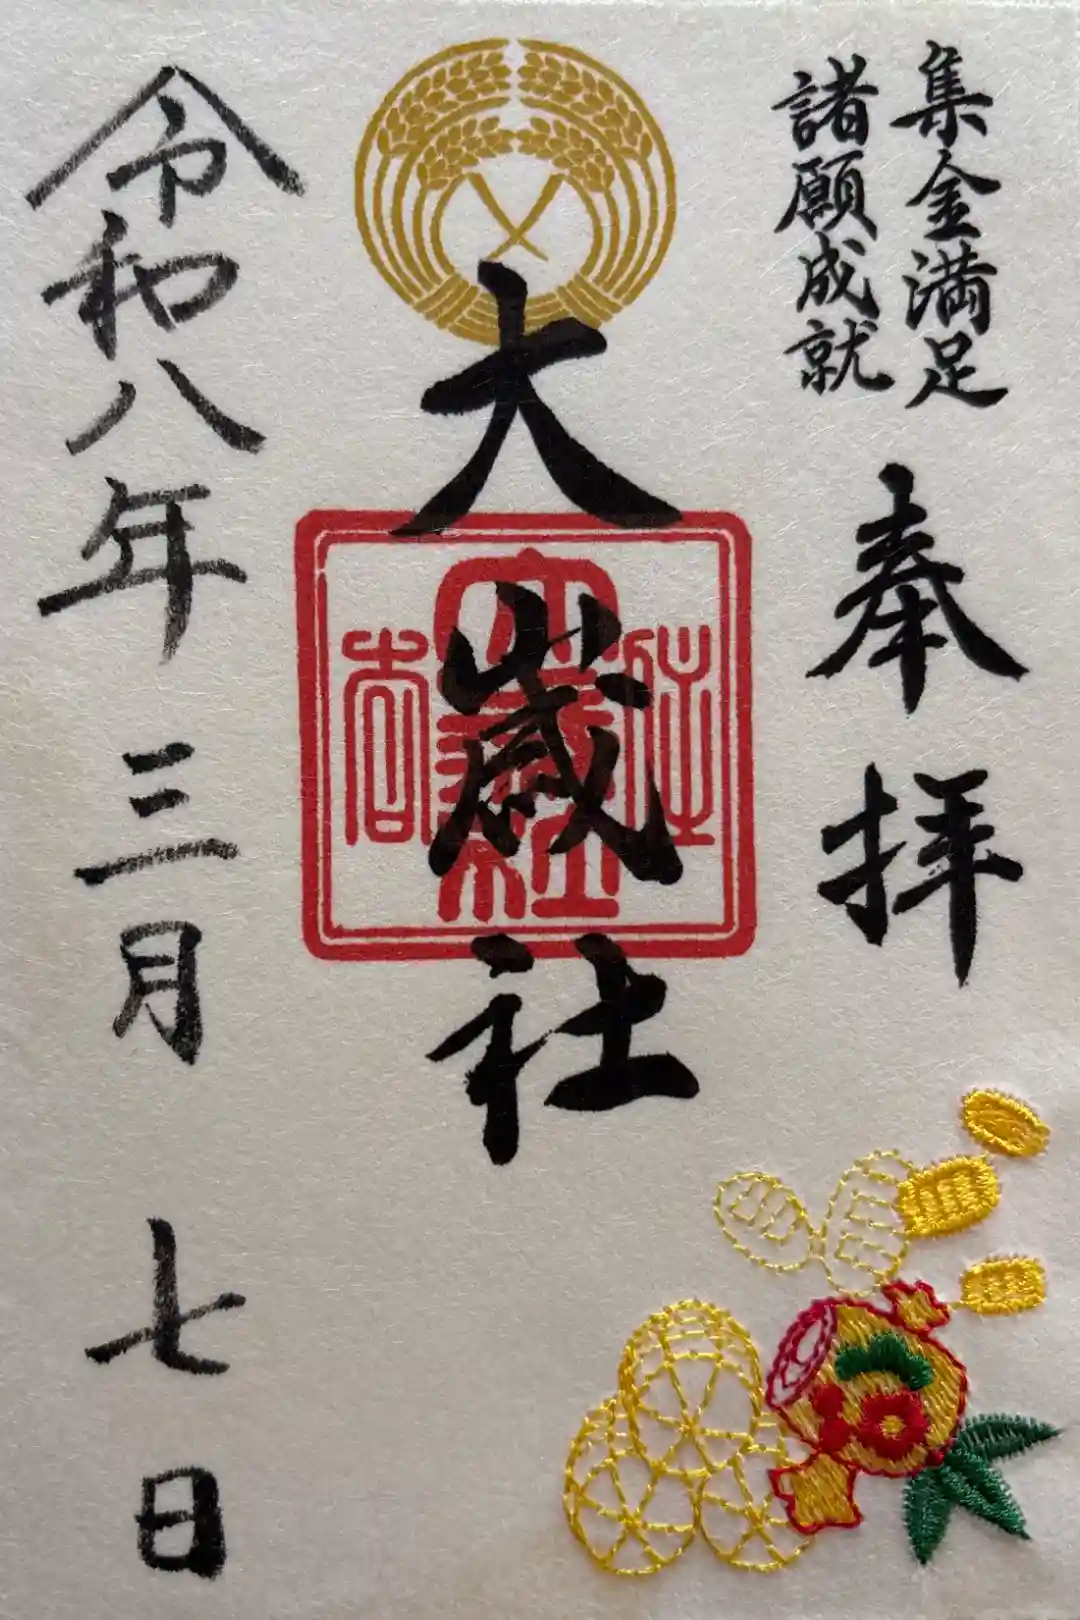 集金満足
諸願成就
奉拝
大歳社
令和八年三月七日